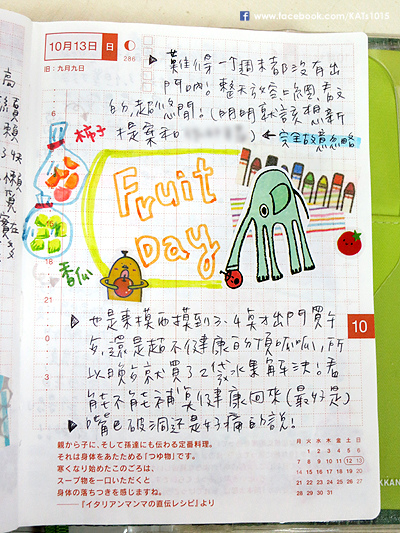 www.facebook.com/KATs1015
10月13日 日
286
旧:九月九日
一個週末都沒有出
門
上網、看文
的超悠閒!(明明就該想新
提案和
←完全故意忽略
柿子
Fruit
Day
香瓜
▶也是東摸西摸到3、4點才出門買午
餐,還是超不健康的頂呱呱,所
以晚餐就買了2袋水果解決!看
能不能補點健康回來(最好是)
▶嘴巴破洞還是好痛的說!
10
親から子に、そして孫達にも伝わる定番料理。
それは身体をあたためる「つゆ物」です。
寒くなり始めたこのごろは、
スープ物を一口いただくと
身体の落ちつきを感じますね。
――『イタリアンマンマの直伝レシピ』より
月 火 水 木 金 土 日
1 2 3 4 5 6
7 8 9 10 11 12 13
14 15 16 17 18 19 20
21 22 23 24 25 26 27
28 29 30 31